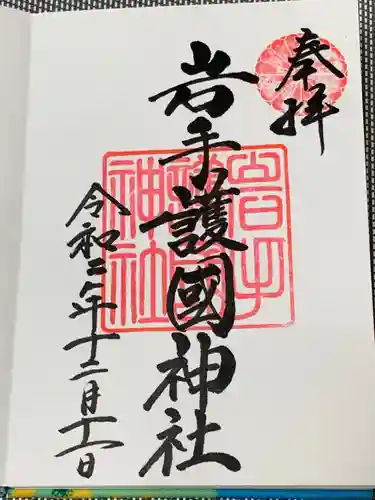 奉拝
岩手護國神社
令和二年十二月十一日
岩手護國神社